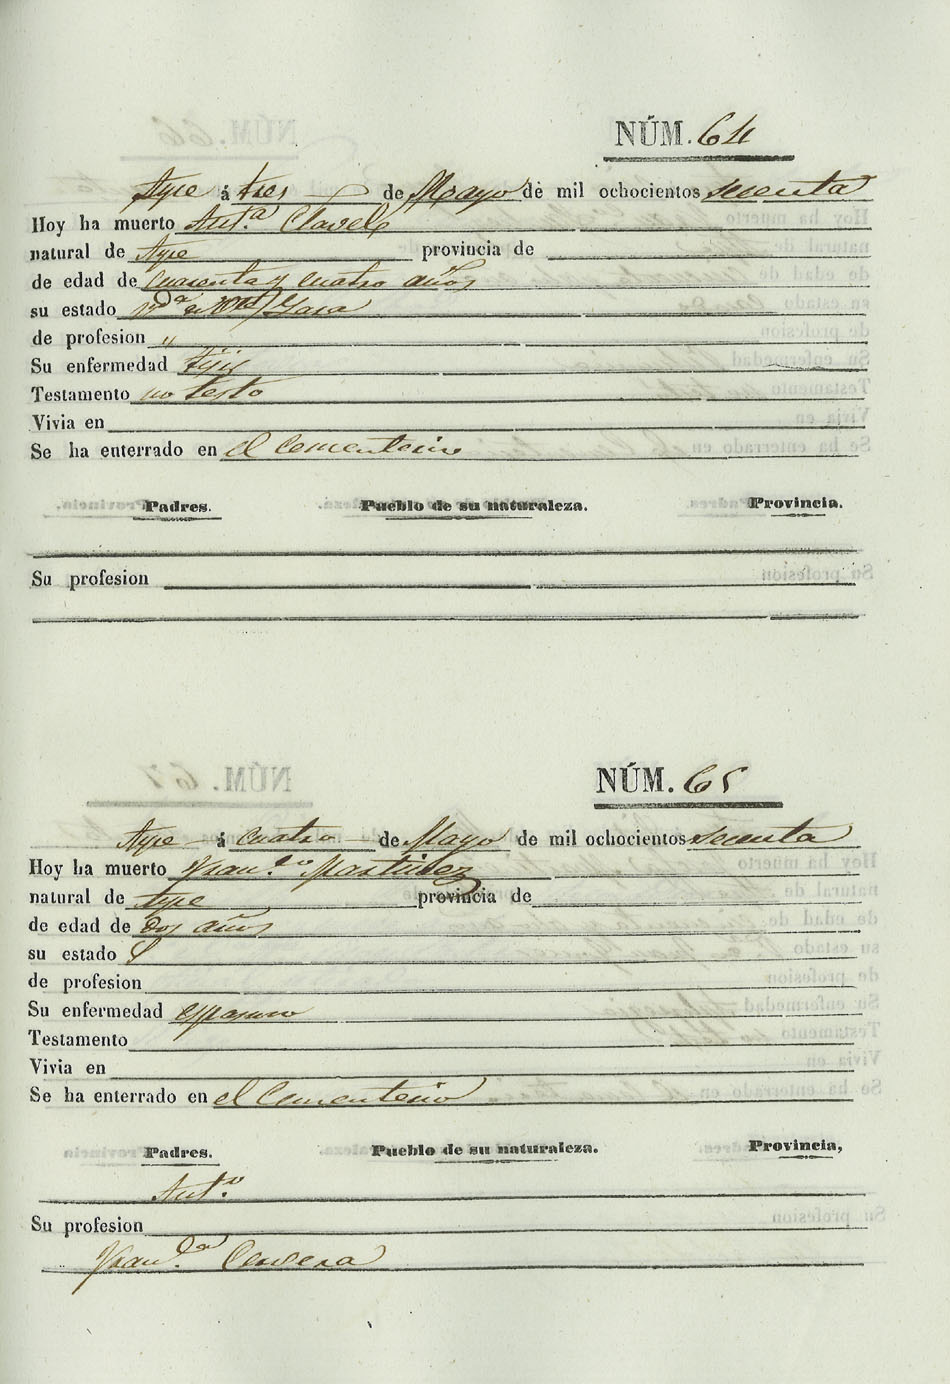 NÚM. 64
Ayre á tres de Mayo de mil ochocientos sesenta
Hoy ha muerto Ant.ª Clavel
natural de Ayre provincia de
de edad de cuarenta y cuatro años
su estado v.da de
de profesion "
Su enfermedad tijis
Testamento no testo
Vivia en
Se ha enterrado en el Cementerio
Padres. Pueblo de su naturaleza. Provincia.
Su profesion
NÚM. 65
Ayre á cuatro de Mayo de mil ochocientos sesenta
Hoy ha muerto Fran.co Martinez
natural de Ayre provincia de
de edad de dos años
su estado
de profesion
Su enfermedad
Testamento
Vivia en
Se ha enterrado en el Cementerio
Padres. Pueblo de su naturaleza. Provincia,
Ant.o
Su profesion
Fran.ca Cervera